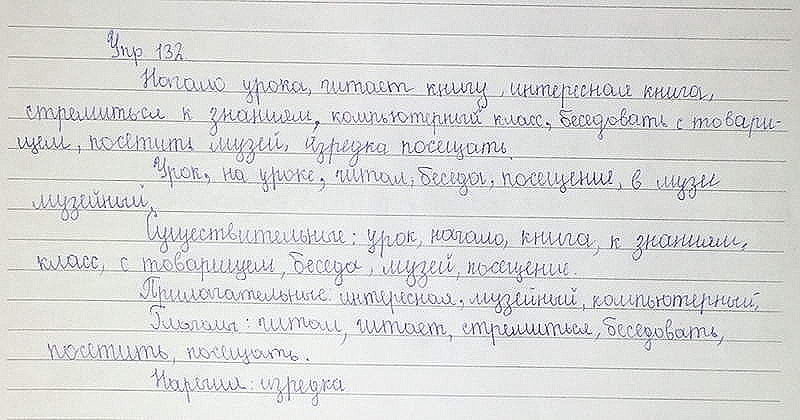 Упр 132
Начало урока, читает книгу, интересная книга,
стремиться к знаниям, компьютерный класс, беседовать с товари-
щем, посетить музей, изредка посещать.
Урок, на уроке, читал, беседы, посещение, в музее
музейный.
Существительные: урок, начало, книга, к знаниям,
класс, с товарищем, беседа, музей, посещение.
Прилагательные: интересная, музейный, компьютерный.
Глаголы: читал, читает, стремиться, беседовать,
посетить, посещать.
Наречия: изредка